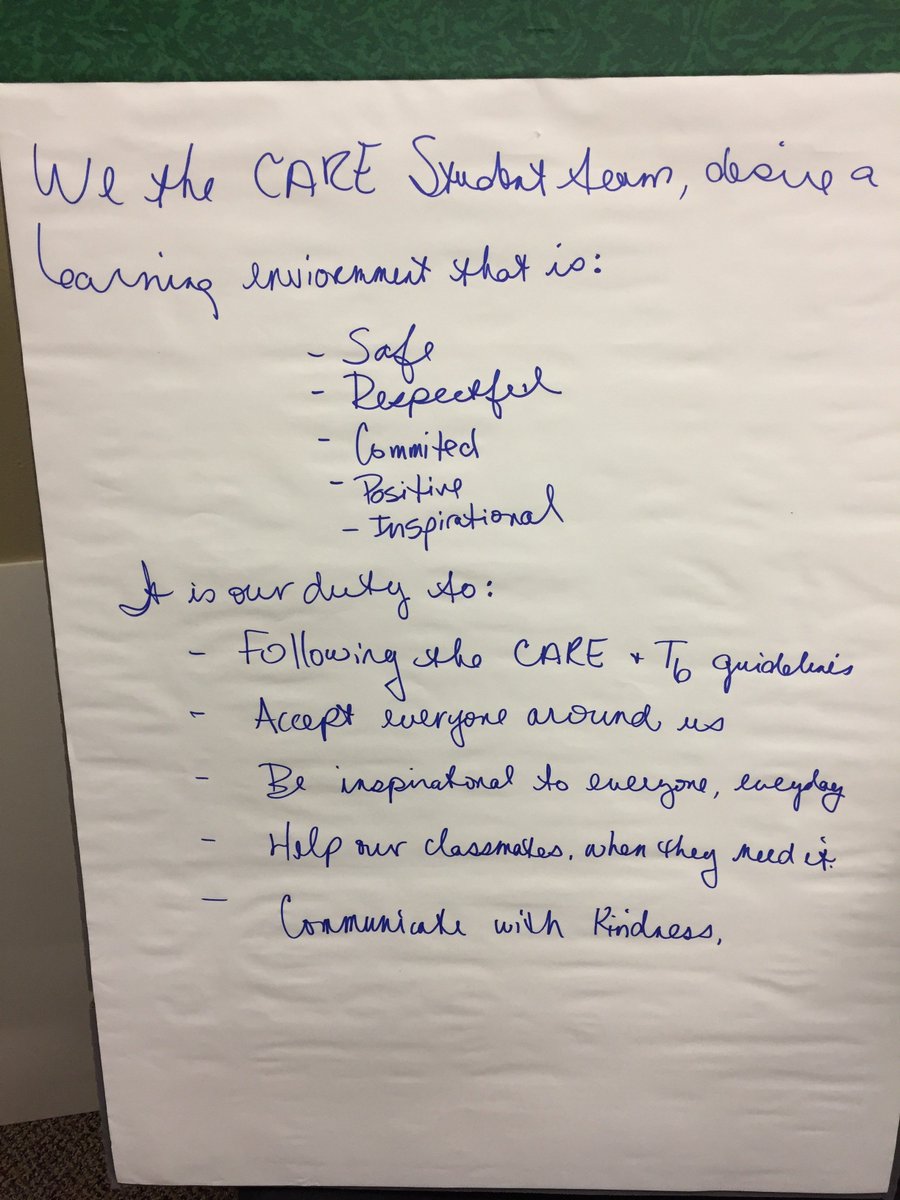 We the CARE Student team, desire a
learning enviornment that is:
- Safe
- Respectful
- Commited
- Positive
- Inspirational
It is our duty to:
- Following the CARE + T6 guidelines
- Accept everyone around us
- Be inspirational to everyone, everyday
- Help our classmates. when they need it.
- Communicate with Kindness,